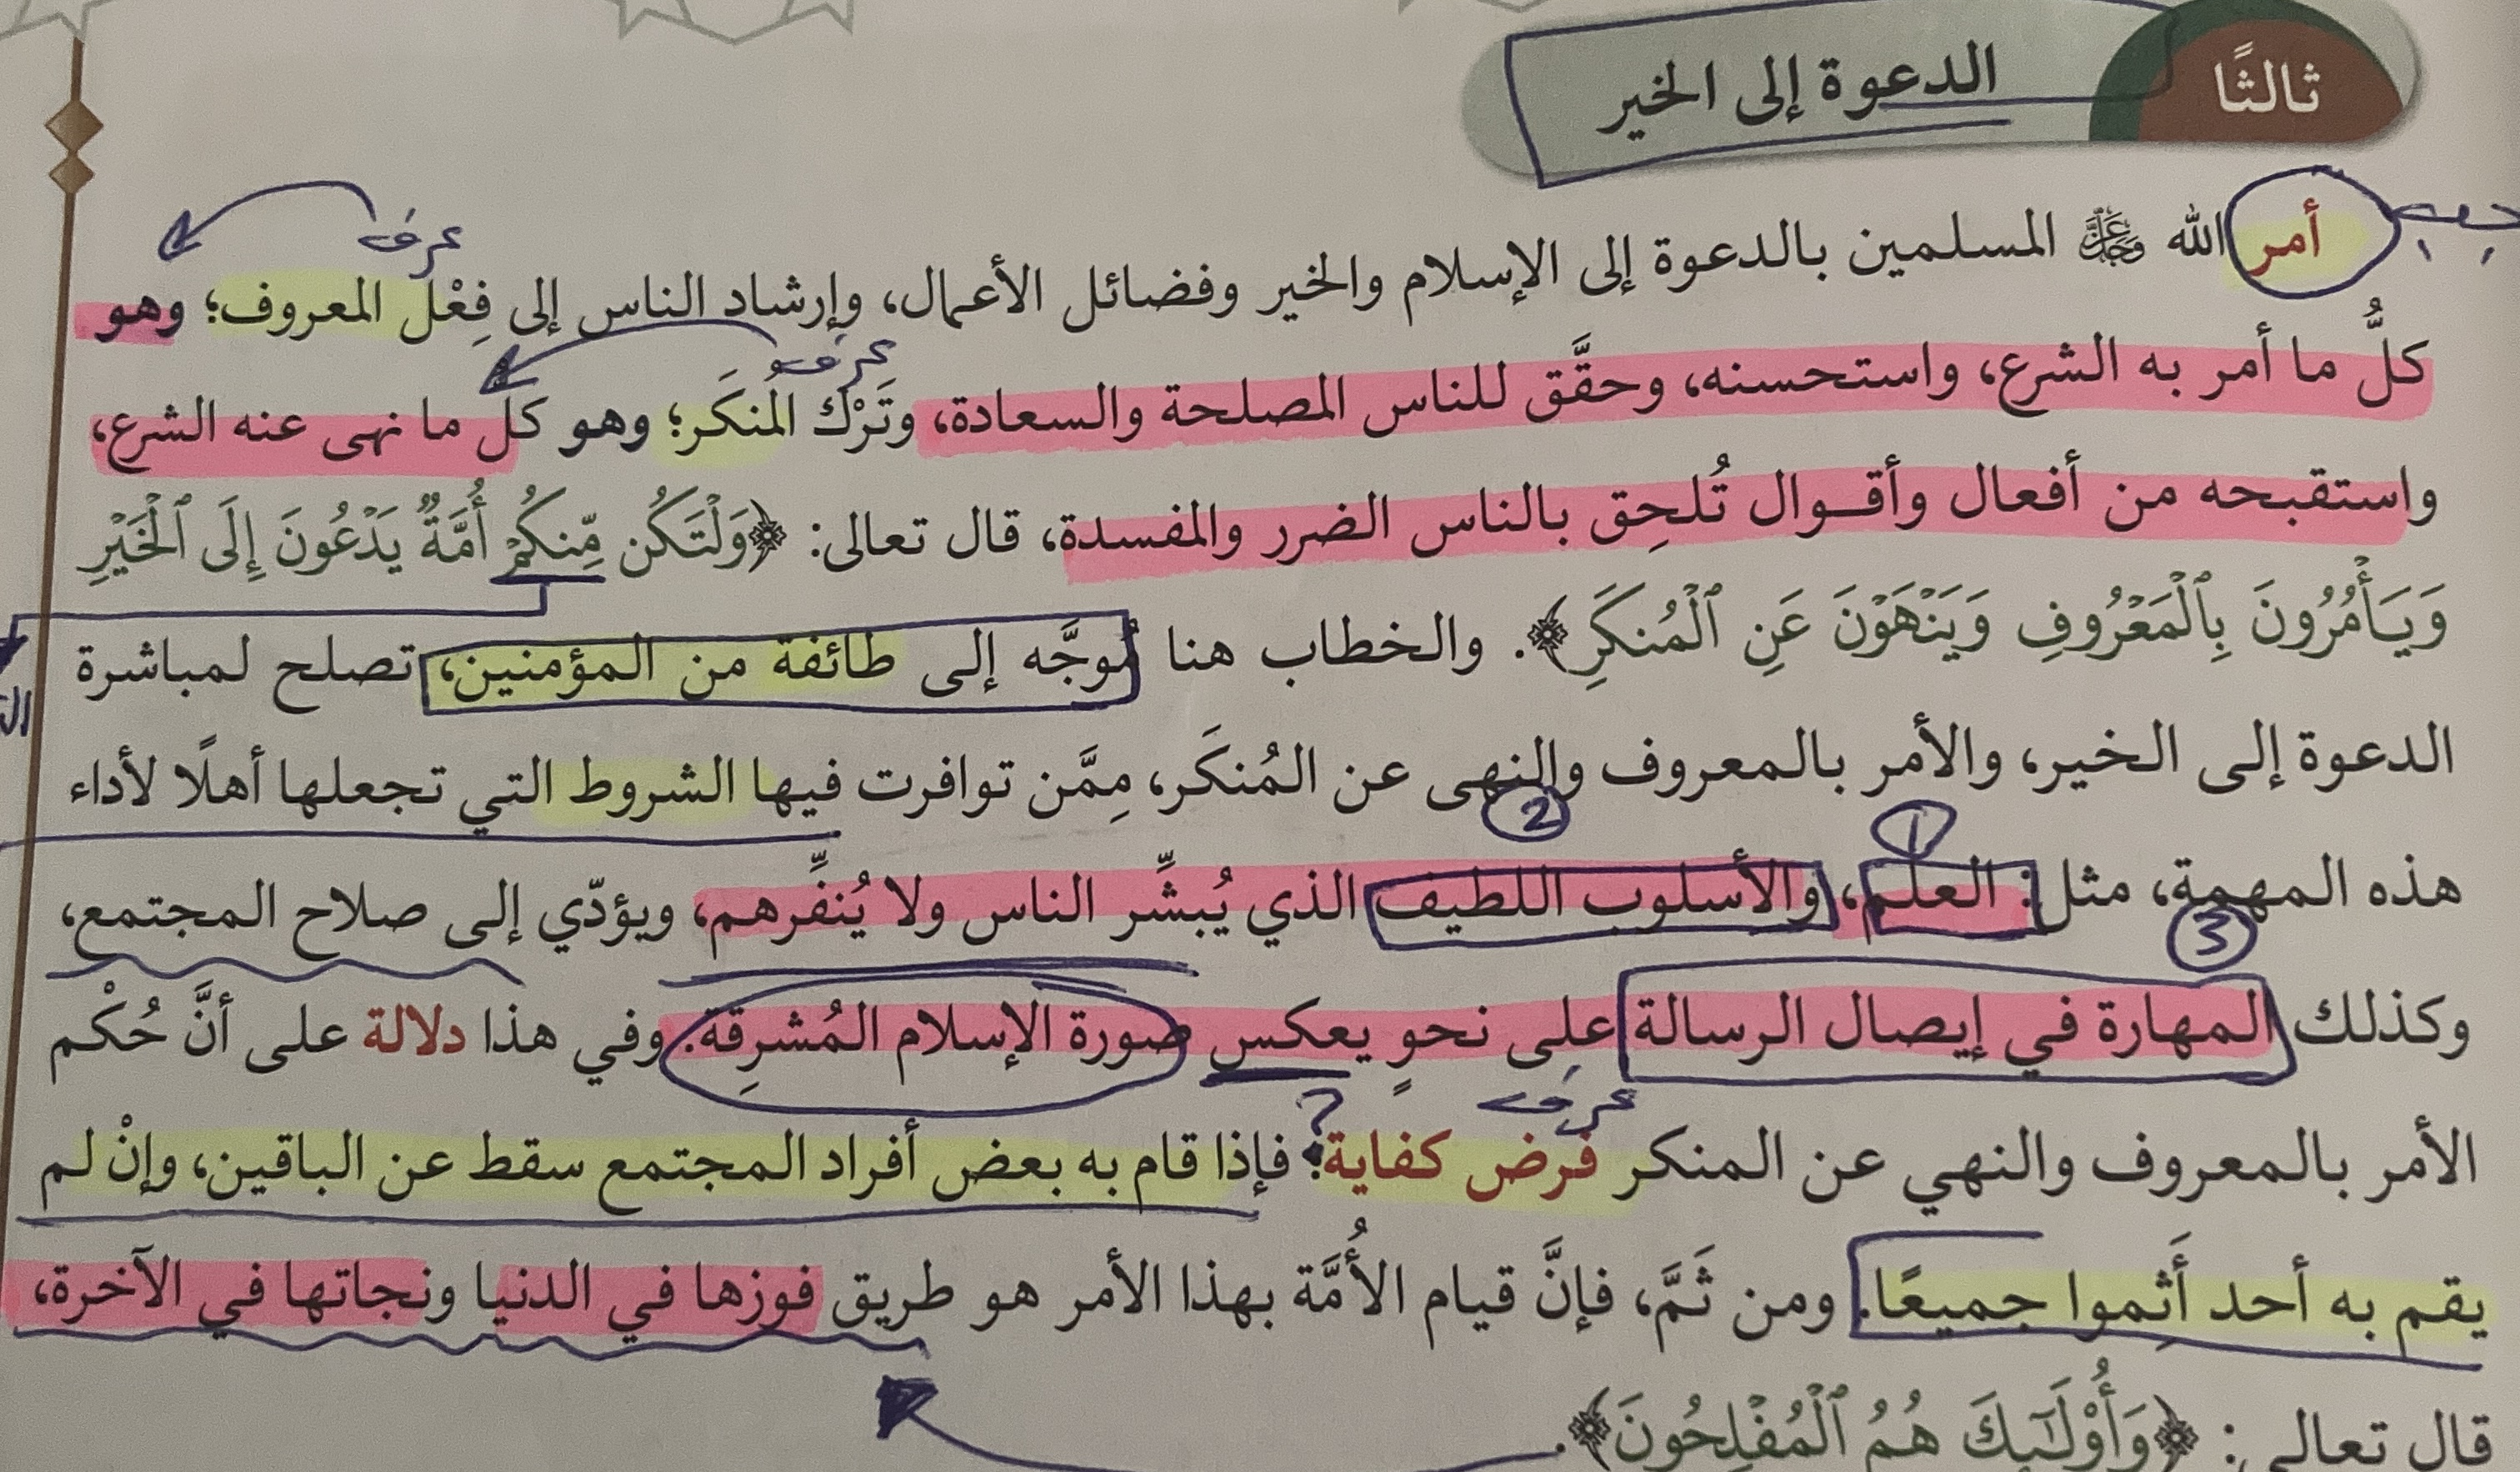 ثالثًا
الدعوة إلى الخير
أمر الله ﷻ المسلمين بالدعوة إلى الإسلام والخير وفضائل الأعمال، وإرشاد الناس إلى فِعْل المعروف؛ وهو
عرف
كلُّ ما أمر به الشرع، واستحسنه، وحقَّق للناس المصلحة والسعادة، وتَرْك المُنكَر؛ وهو كل ما نهى عنه الشرع،
عرف
واستقبحه من أفعال وأقوال تُلحِق بالناس الضرر والمفسدة، قال تعالى: ﴿وَلْتَكُن مِّنكُمْ أُمَّةٌ يَدْعُونَ إِلَى ٱلْخَيْرِ
وَيَأْمُرُونَ بِٱلْمَعْرُوفِ وَيَنْهَوْنَ عَنِ ٱلْمُنكَرِ﴾. والخطاب هنا مُوجَّه إلى طائفة من المؤمنين، تصلح لمباشرة
الدعوة إلى الخير، والأمر بالمعروف والنهي عن المُنكَر، مِمَّن توافرت فيها الشروط التي تجعلها أهلًا لأداء
1 2
هذه المهمة، مثل: العلم، والأسلوب اللطيف الذي يُبشِّر الناس ولا يُنفِّرهم، ويؤدّي إلى صلاح المجتمع،
3
وكذلك المهارة في إيصال الرسالة على نحوٍ يعكس صورة الإسلام المُشرِقة. وفي هذا دلالة على أنَّ حُكْم
عرف ؟
الأمر بالمعروف والنهي عن المنكر فرض كفاية؛ فإذا قام به بعض أفراد المجتمع سقط عن الباقين، وإنْ لم
يقم به أحد أَثِموا جميعًا. ومن ثَمَّ، فإنَّ قيام الأُمَّة بهذا الأمر هو طريق فوزها في الدنيا ونجاتها في الآخرة،
قال تعالى: ﴿وَأُوْلَٰٓئِكَ هُمُ ٱلْمُفْلِحُونَ﴾.